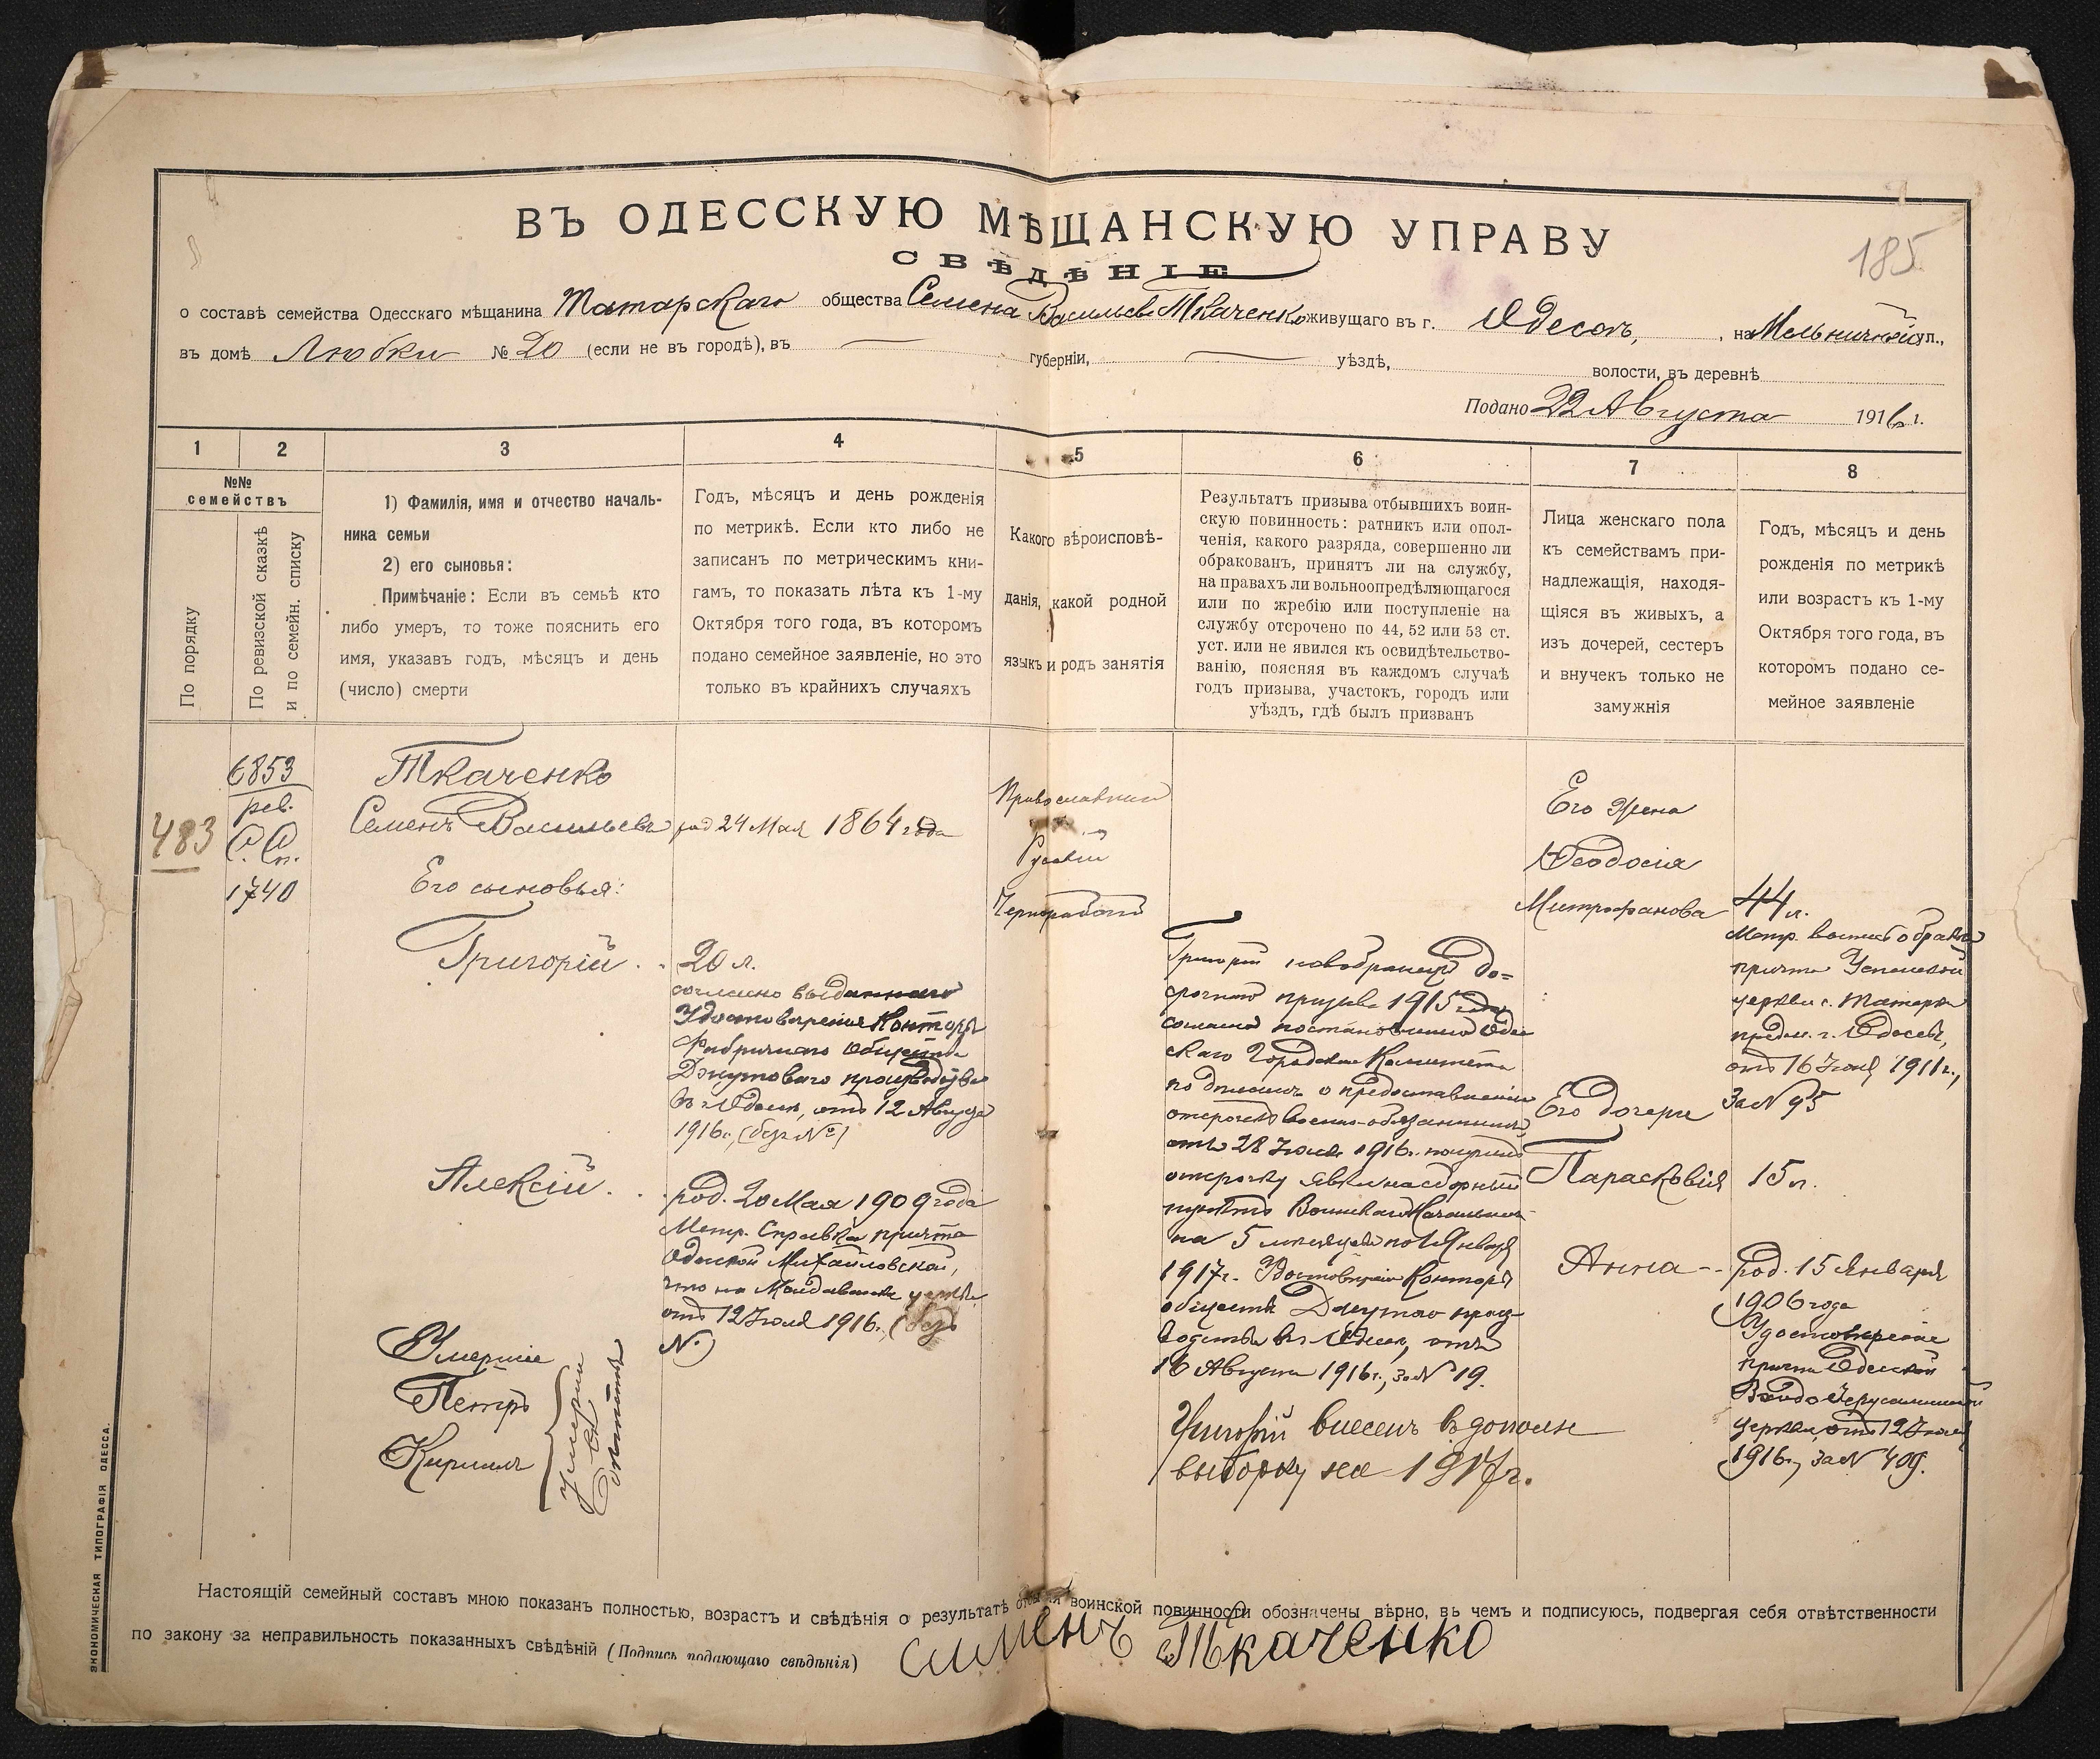 ВЪ ОДЕССКУЮ МѢЩАНСКУЮ УПРАВУ
185
СВѢДѢНІЕ
о составѣ семейства Одесскаго мѣщанина Татарскаго общества Семена Васильева Ткаченко живущаго въ г. Одессѣ, на Мельничной ул.,
въ домѣ Любки № 20 (если не въ городѣ), въ губерніи, уѣздѣ, волости, въ деревнѣ
Подано 22 Августа 1916 г.
1 2 3 4 5 6 7 8
№№
семействъ
По порядку
По ревизской сказкѣ
и по семейн. списку
1) Фамилія, имя и отчество началь-
ника семьи
2) его сыновья:
Примѣчаніе: Если въ семьѣ кто
либо умеръ, то тоже пояснить его
имя, указавъ годъ, мѣсяцъ и день
(число) смерти
Годъ, мѣсяцъ и день рожденія
по метрикѣ. Если кто либо не
записанъ по метрическимъ кни-
гамъ, то показать лѣта къ 1-му
Октября того года, въ которомъ
подано семейное заявленіе, но это
только въ крайнихъ случаяхъ
Какого вѣроисповѣ-
данія, какой родной
языкъ и родъ занятія
Результатъ призыва отбывшихъ воин-
скую повинность: ратникъ или опол-
ченія, какого разряда, совершенно ли
обракованъ, принятъ ли на службу,
на правахъ ли вольноопредѣляющагося
или по жребію или поступленіе на
службу отсрочено по 44, 52 или 53 ст.
уст. или не явился къ освидѣтельство-
ванію, поясняя въ каждомъ случаѣ
годъ призыва, участокъ, городъ или
уѣздъ, гдѣ былъ призванъ
Лица женскаго пола
къ семействамъ при-
надлежащія, находя-
щіяся въ живыхъ, а
изъ дочерей, сестеръ
и внучекъ только не
замужнія
Годъ, мѣсяцъ и день
рожденія по метрикѣ
или возрастъ къ 1-му
Октября того года, въ
которомъ подано се-
мейное заявленіе
483
6853
рев.
С. Сп.
1740
Ткаченко
Семенъ Васильевъ
Его сыновья:
Григорій
Алексій
Умершіе
Петръ
Кириллъ
умерли
въ
род 24 Мая 1864 года
20 л.
согласно выданнаго
Удостовѣренія Конторы
Фабричнаго Общества
Джутоваго производства
въ г. Одессѣ, отъ 12 Августа
1916 г. (безъ №)
род. 20 Мая 1909 года
Метр. Справка причта
Одесской Михайловской,
что на Молдаванкѣ церкви
отъ 12 Іюля 1916 г. (безъ
№)
Православный
Русскій
Чернорабочій
Григорій новобранецъ до-
срочнаго призыва 1915 года
согласно постановленія Одес
скаго Городского Комитета
по дѣламъ о предоставленіи
отсрочекъ военно-обязаннымъ,
отъ 28 Іюля 1916 г. получилъ
отсрочку явки на сборный
пунктъ Воинскаго Начальника
на 5 мѣсяцевъ по 1 Января
1917 г. Удостовѣреніе Конторы
общества Джутово произ-
водства въ г. Одессѣ, отъ
16 Августа 1916 г., за № 19.
Григорій внесенъ въ дополн
выборку на 1917 г.
Его жена
Ѳеодосія
Митрофанова
Его дочери
Парасковія
Анна
44 л.
Метр. выпись о бракѣ
причта Успенской
церкви с. Татарки
предм. г. Одессы,
отъ 16 1911 г.,
За № 95
15 л.
род. 15 Января
1906 года
Удостовѣреніе
причта Одесской
Входо-Іерусалимской
церкви, отъ 12 Іюля
1916 г., за № 409.
Настоящій семейный составъ мною показанъ полностью, возрастъ и свѣдѣнія о результатѣ воинской повинности обозначены вѣрно, въ чемъ и подписуюсь, подвергая себя отвѣтственности
по закону за неправильность показанныхъ свѣдѣній (Подпись подающаго свѣдѣнія) Сименъ Ткаченко
ЭКОНОМИЧЕСКАЯ ТИПОГРАФІЯ ОДЕССА.